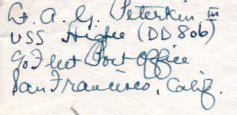 Lt. A. G. Peterkin III
USS Higbee (DD 806)
℅ Fleet Post Office
San Francisco, Calif.